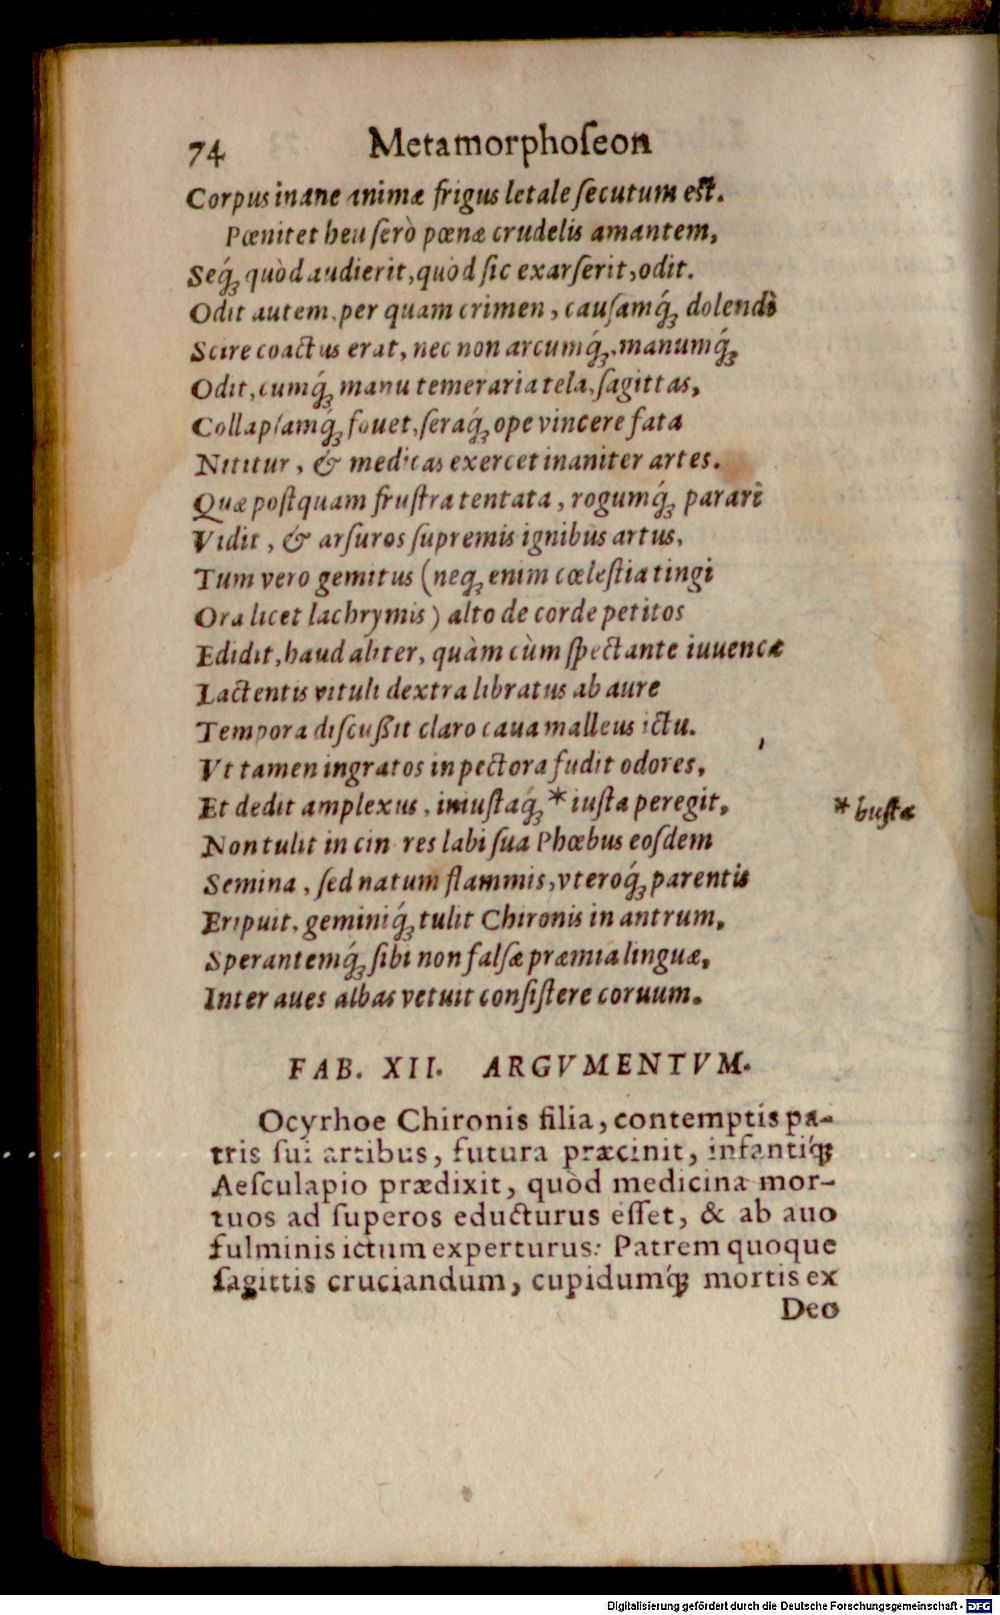 74 Metamorphoſeon
Corpus inane animæ frigus letale ſecutum eſt.
Pœnitet heu ſerò pœnæ crudelis amantem,
Seq́ꝫ quòd audierit, quòd ſic exarſerit, odit.
Odit autem, per quam crimen, cauſamq́ꝫ dolendi
Scire coactus erat, nec non arcumq́ꝫ, manumq́ꝫ
Odit, cumq́ꝫ manu temeraria tela, ſagittas,
Collapſamq́ꝫ fouet, ſeraq́ꝫ ope vincere fata
Nititur, & medicas exercet inaniter artes.
Quæ poſtquam fruſtra tentata, rogumq́ꝫ parari
Vidit, & arſuros ſupremis ignibus artus,
Tum vero gemitus (neqꝫ enim cœleſtia tingi
Ora licet lachrymis) alto de corde petitos
Edidit, haud aliter, quàm cùm ſpectante iuuencæ
Lactentis vituli dextra libratus ab aure
Tempora diſcußit claro caua malleus ictu.
Vt tamen ingratos in pectora fudit odores,
Et dedit amplexus, iniuſtaq́ꝫ * iuſta peregit,
* buſta
Non tulit in cin res labi ſua Phœbus eoſdem
Semina, ſed natum flammis, vteroq́ꝫ parentis
Eripuit, geminiq́ꝫ tulit Chironis in antrum,
Sperantemq́ꝫ ſibi non falſæ præmia linguæ,
Inter aues albas vetuit conſiſtere coruum.
FAB. XII. ARGVMENTVM.
Ocyrhoe Chironis filia, contemptis pa-
tris ſui artibus, futura præcinit, infantiq́ꝫ
Aeſculapio prædixit, quòd medicina mor-
tuos ad ſuperos educturus eſſet, & ab auo
fulminis ictum experturus: Patrem quoque
ſagittis cruciandum, cupidumq́ꝫ mortis ex
Deo
Digitalisierung gefördert durch die Deutsche Forschungsgemeinschaft - DFG